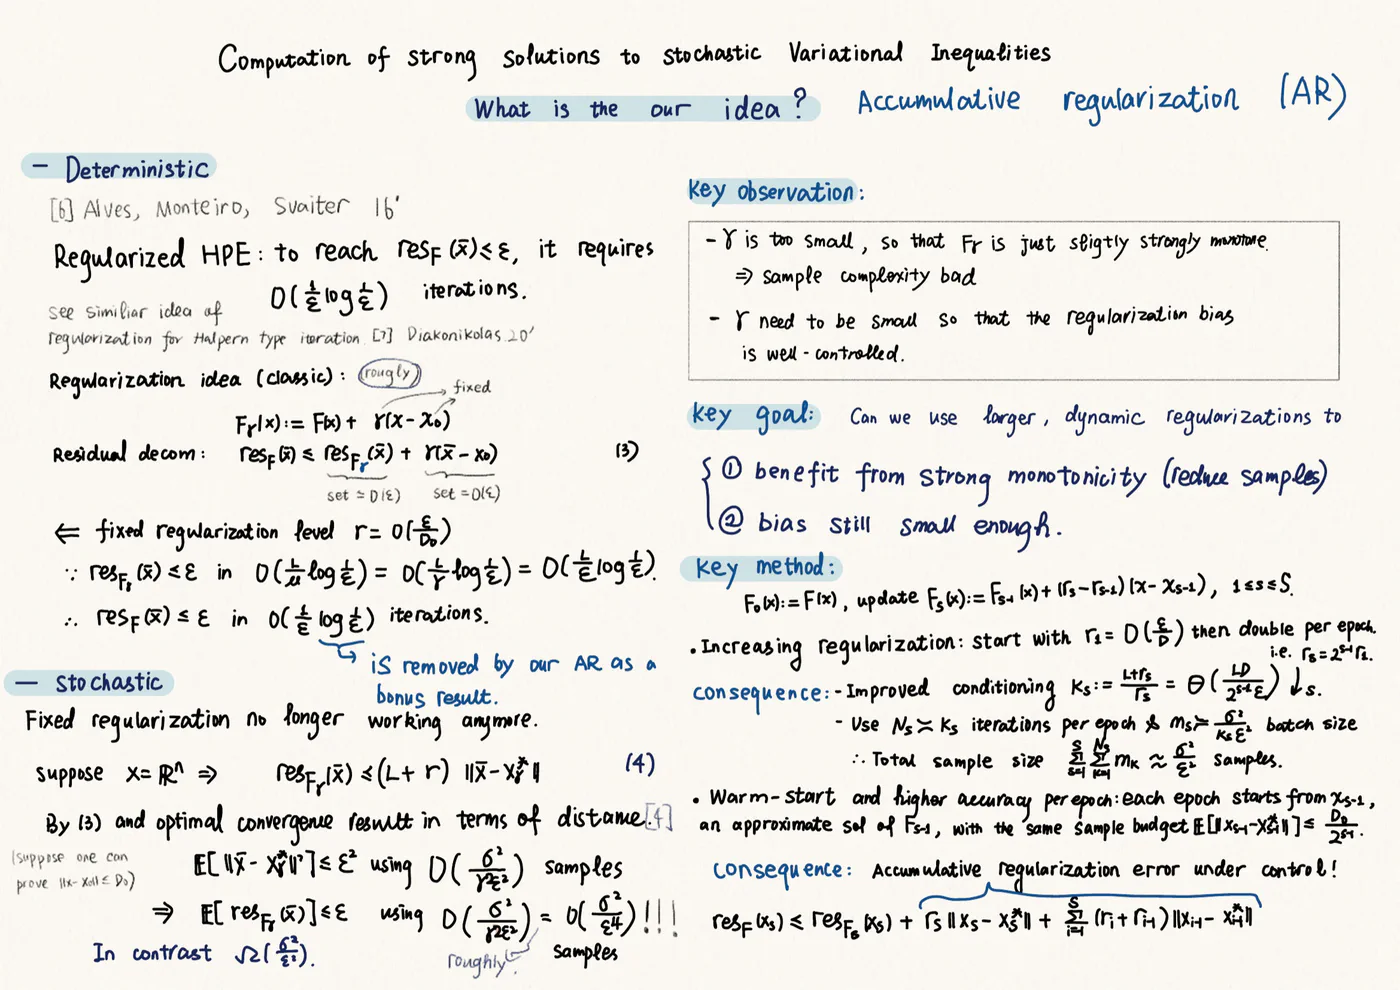 Computation of strong solutions to stochastic Variational Inequalities
What is the our idea? Accumulative regularization (AR)
— Deterministic
[6] Alves, Monteiro, Svaiter 16'
Regularized HPE: to reach res_F(x̄) ≤ ε, it requires
O(L/ε log L/ε) iterations.
see similiar idea of
regularization for Halpern type iteration [7] Diakonikolas 20'
Regularization idea (classic): rougly
fixed
F_r(x) := F(x) + r(x - x₀)
Residual decom: res_F(x̄) ≤ res_{F_r}(x̄) + r(x̄ - x₀) (3)
set = O(ε) set = O(ε)
⇐ fixed regularization level r = O(ε/D₀)
∵ res_{F_r}(x̄) ≤ ε in O(L/μ log L/ε) = O(L/r log L/ε) = O(L/ε log L/ε).
∴ res_F(x̄) ≤ ε in O(L/ε log L/ε) iterations.
is removed by our AR as a
bonus result.
— Stochastic
Fixed regularization no longer working anymore.
suppose X = ℝⁿ ⇒ res_{F_r}(x̄) ≤ (L + r) ||x̄ - x_r^*|| (4)
By (3) and optimal convergence resultt in terms of distance [4]
(suppose one can
prove ||x - x₀|| ≤ D₀)
E[||x̄ - x_r^*||²] ≤ ε² using O(σ²/r²ε²) samples
⇒ E[res_{F_r}(x̄)] ≤ ε using O(σ²/r²ε²) = O(σ²/ε⁴) !!!
roughly samples
In contrast Ω(σ²/ε²).
Key observation:
- r is too small, so that Fr is just sligtly strongly monotone.
⇒ sample complexity bad
- r need to be small so that the regularization bias
is well-controlled.
Key goal: Can we use larger, dynamic regularizations to
① benefit from strong monotonicity (reduce samples)
② bias still small enough.
Key method:
F₀(x) := F(x), update F_s(x) := F_{s-1}(x) + (r_s - r_{s-1})(x - x_{s-1}), 1 ≤ s ≤ S.
• Increasing regularization: start with r₁ = O(ε/D) then double per epoch.
i.e. r_s = 2^{s-1} r₁.
consequence: - Improved conditioning K_s := (L+r_s)/r_s = Θ(LD/2^{s-1}ε) ↓ s.
- Use N_s ≍ K_s iterations per epoch & m_s ≍ σ²/K_sε² batch size
∴ Total sample size Σ_{s=1}^{S} Σ_{k=1}^{N_s} m_k ≈ σ²/ε² samples.
• Warm-start and higher accuracy per epoch: each epoch starts from x_{s-1},
an approximate sol of F_{s-1}, with the same sample budget E[||x_{s-1} - x_{s-1}^*||] ≤ D₀/2^{s-1}.
consequence: Accumulative regularization error under control!
res_F(x_s) ≤ res_{F_s}(x_s) + r_s ||x_s - x_s^*|| + Σ_{i=1}^{S} (r_i + r_{i-1}) ||x_{i-1} - x_{i-1}^*||